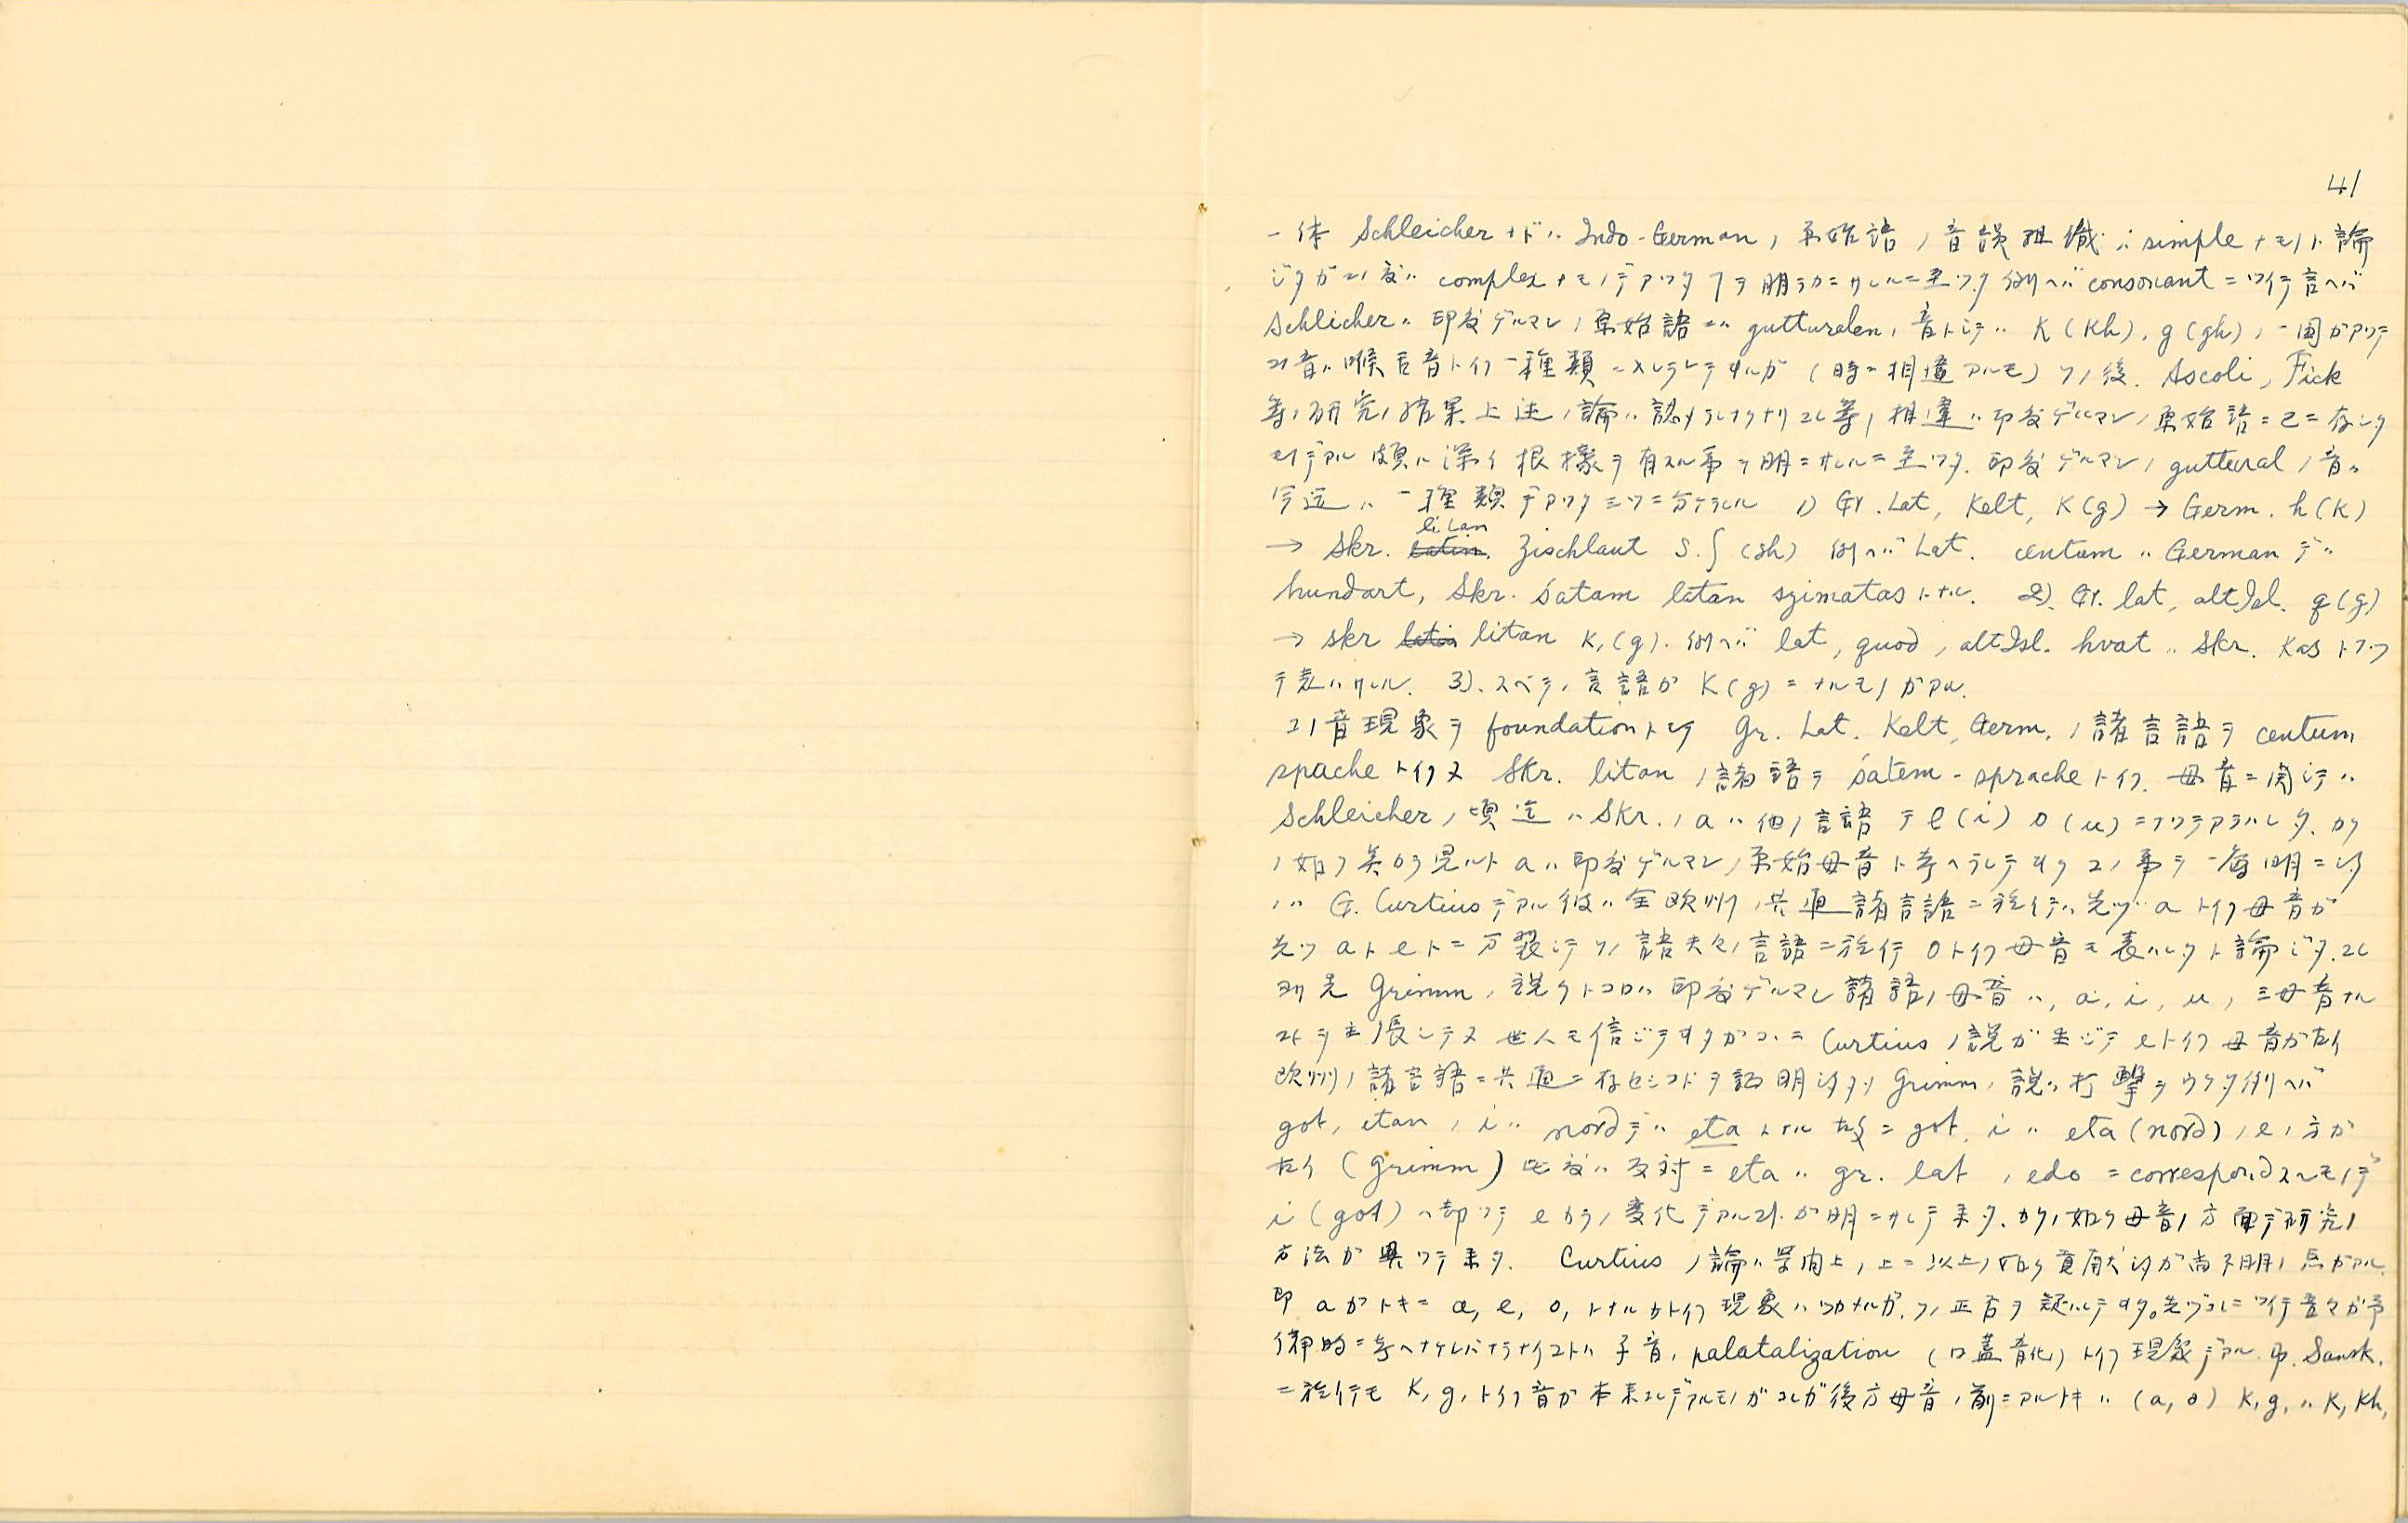 41
一体 Schleicher ナドハ Indo-German ノ原始語ノ音韻組織ハ simple ナモノト論
ジタガコノ度ハ complex ナモノデアッタヿヲ明ラカニサレルニ至ッタ 例ヘバ consonant ニツイテ言ヘバ
Schlicher ハ 印度ゲルマン原始語ニハ gutturalen ノ音トシテハ K (Kh), g (gh) ノ一団ガアッテ
コノ音ハ喉舌音トイフ一種類ニ入レラレテヰルガ (時ニ相違アルモ) ソノ後 Ascoli, Fick
等ノ研究ノ結果上述ノ論ハ認メラレナクナリコレ等ノ相違ハ印度ゲルマン原始語ニ已ニ存シタ
モノデアル 頗ル深イ根據ヲ有スル事ヲ明ニサレルニ至ッタ. 印度ゲルマンノ guttural ノ音ハ
今迄ハ一種類デアッタ三ツニ分ケラレル 1) Gr. Lat, Kelt, K(g) → Germ. h(K)
→ Skr. litan Zischlaut S. ʃ (sh) 例ヘバ Lat. centum ハ German デハ
hundart, Skr. śatam litan szimatas トナル. 2). Gr. lat, altIsl. q(g)
→ skr litan K, (g). 例ヘバ lat, quod, altIsl. hvat ハ Skr. Kas トナッ
テ表ハサレル. 3). スベテノ言語ガ K(g) ニナルモノガアル.
コノ音現象ヲ foundation トシタ Gr. Lat. Kelt, Germ. ノ諸言語ヲ centum
spache トイフ又 Skr. litan ノ諸語ヲ śatem-sprache トイフ. 母音ニ関シテハ
Schleicher ノ頃迄ハ Skr. ノ a ハ他ノ言語デ e (i) o (u) ニナッテアラハレタ. カク
ノ如ク 見ルト a ハ印度ゲルマン原始母音ト考ヘラレテヰタ コノ事ヲ一層明ニシタ
ノハ G. Curtius デアル 彼ハ全欧州ノ共通諸言語ニ於テハ先ヅ a トイフ母音ガ
先ヅ a ト e トニ分裂シテソノ語夫々ノ言語ニ於テ o トイフ母音モ表ハレタト論ジタ. コレ
ヨリ先 Grimm ノ説クトコロハ印度ゲルマン諸語ノ母音ハ, a, i, u, ノ三母音ナル
コトヲ主張シテ又世人モ信ジテヰタガコヽニ Curtius ノ説ガ生ジテ e トイフ母音ガ古イ
欧州ノ諸言語ニ共通ニ存セシコトヲ証明シタタメ Grimm ノ説ハ打撃ヲウケタ例ヘバ
got, itan ノ i ハ nord デハ eta トナル 故ニ got. i ハ eta (nord) ノ e ノ方ガ
古イ (Grimm) 此度ハ反対ニ eta ハ gr. lat ノ edo ニ correspond スルモノデ
i (got) ハ却ッテ e カラノ変化デアルコトガ明ニサレテ来タ. カクノ如ク母音ノ方面デ研究ノ
方法ガ異ッテ来タ. Curtius ノ論ハ学問上ノ上ニ以上ノ如ク貢献シタガ尚不明ノ点ガアル.
即 a ガトキニ a, e, o, トナルカトイフ現象ハワカナルガ, ソノ正否ヲ疑ハレテヰタ。先ヅコレニツイテ吾々ガ予
備的ニ考ヘナケレバナラナイコトハ子音ノ palatalization (口蓋音化) トイフ現象デアル 即. Sansk.
ニ於テモ K, g, トイフ音ガ本来コレデアルモノガコレガ後方母音ノ前ニアルトキハ (a, o) K, g, ハ K, Kh,